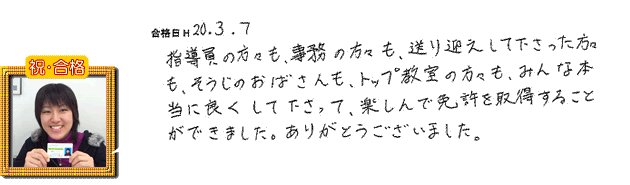 合格日 H20.3.7
指導員の方々も、事務の方々も、送り迎えして下さった方々
も、そうじのおばさんも、トップ教室の方々も、みんな本
当に良くして下さって、楽しんで免許を取得すること
ができました。ありがとうございました。
祝・合格